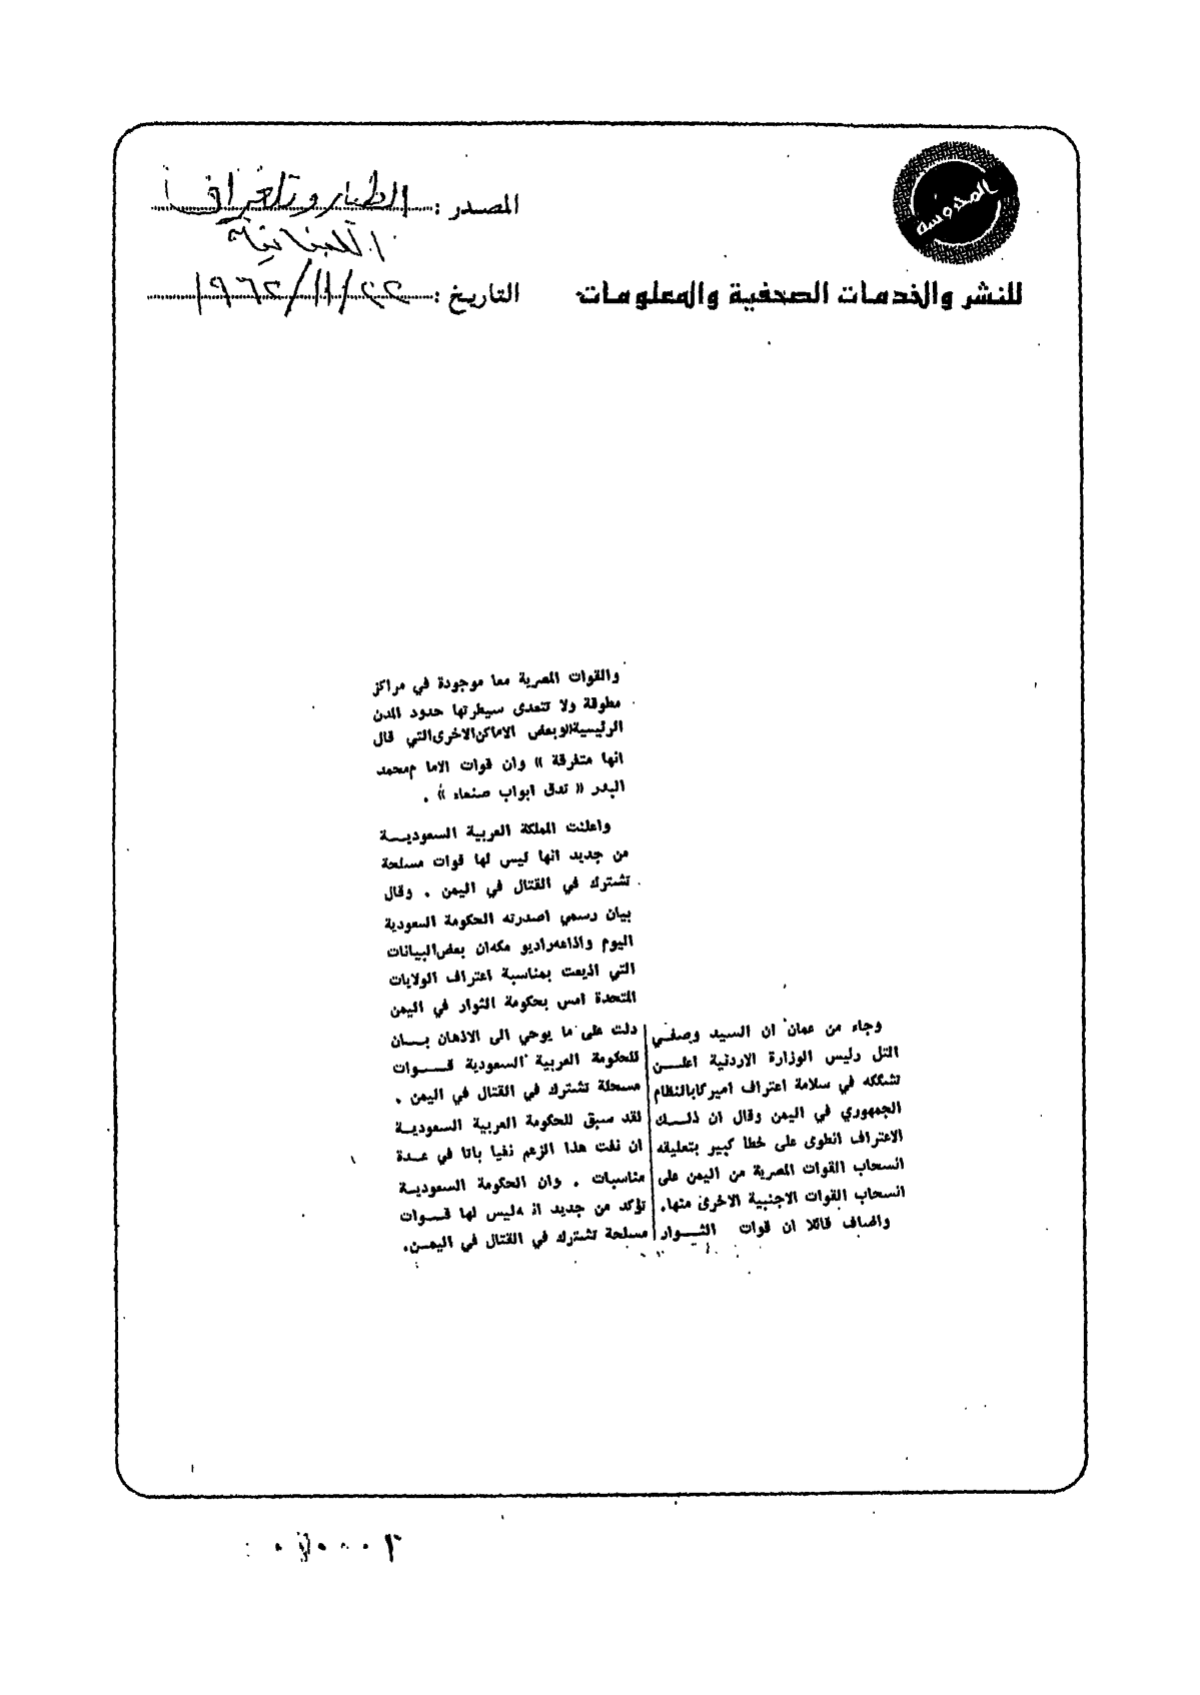 المحروسة
للنشر والخدمات الصحفية والمعلومات
المصدر :
اللبنانية
التاريخ : ٢٢/١١/١٩٦٢
وجاء من عمان ان السيد وصفي
التل رئيس الوزارة الاردنية اعلــن
تشككه في سلامة اعتراف اميركابالنظام
الجمهوري في اليمن وقال ان ذلــك
الاعتراف انطوى على خطا كبير بتعليقه
انسحاب القوات المصرية من اليمن على
انسحاب القوات الاجنبية الاخرى منها.
واضاف قائلا ان قوات الثــوار
والقوات المصرية معا موجودة في مراكز
مطوقة ولا تتعدى سيطرتها حدود المدن
الرئيسية«وبعض الاماكن الاخرى التي قال
انها متفرقة » وان قوات الاما م محمد
البدر « تدق ابواب صنعاء » .
واعلنت المملكة العربية السعوديــة
من جديد انها ليس لها قوات مسلحة
تشترك في القتال في اليمن . وقال
بيان رسمي اصدرته الحكومة السعودية
اليوم واذاعه راديو مكه ان بعض البيانات
التي اذيعت بمناسبة اعتراف الولايات
المتحدة امس بحكومة الثوار في اليمن
دلت على ما يوحي الى الاذهان بــان
للحكومة العربية السعودية قــوات
مسحلة تشترك في القتال في اليمن .
لقد سبق للحكومة العربية السعوديــة
ان نفت هذا الزعم نفيا باتا في عــدة
مناسبات . وان الحكومة السعوديــة
تؤكد من جديد ان ه ليس لها قــوات
مسلحة تشترك في القتال في اليمــن.